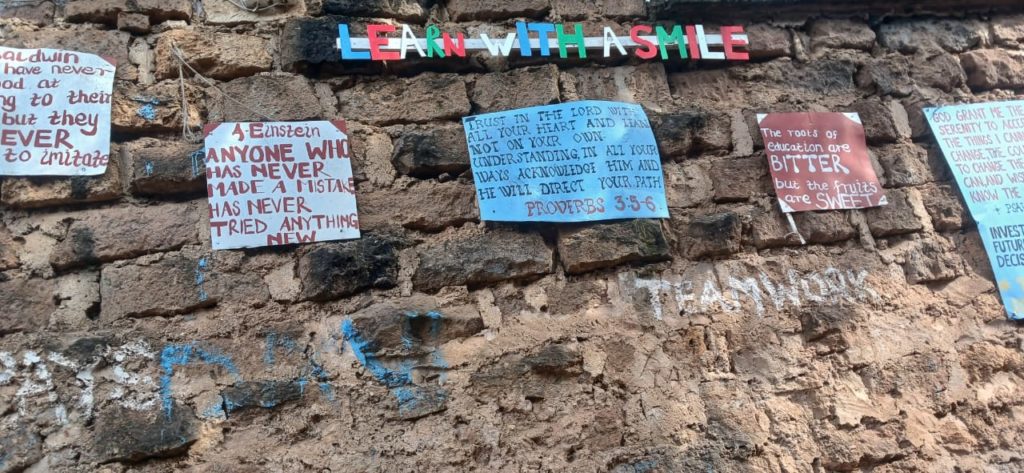 LEARN WITH A SMILE
BALDWIN
have never
to their
but they
EVER
to imitate
A Einstein
ANYONE WHO
HAS NEVER
MADE A MISTAKE
HAS NEVER
TRIED ANYTHING
NEW
TRUST IN THE LORD WITH
ALL YOUR HEART AND LEAN
NOT ON YOUR OWN
UNDERSTANDING, IN ALL YOUR
WAYS ACKNOWLEDGE HIM AND
HE WILL DIRECT YOUR PATH
PROVERBS 3:5-6
The roots of
education are
BITTER
but the fruits
are SWEET
GOD GRANT ME THE
SERENITY TO
THE THINGS I
CHANGE, THE
TO CHANGE THE
CAN, AND
KNOW THE
INVEST
FUTURE
DECIS
TEAMWORK